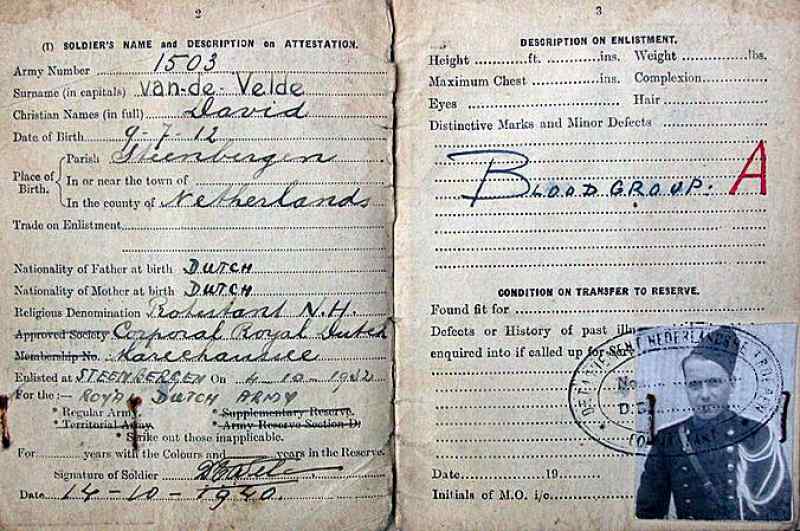 2
(I) SOLDIER'S NAME and DESCRIPTION on ATTESTATION.
Army Number 1503
Surname (in capitals) van-de-Velde
Christian Names (in full) David
Date of Birth 9-7-12
Place of Birth. { Parish Steenbergen
In or near the town of
In the county of Netherlands
Trade on Enlistment
Nationality of Father at birth DUTCH
Nationality of Mother at birth DUTCH
Religious Denomination Protestant N.H.
Approved Society Corporal Royal Dutch
Membership No. Marechaussee
Enlisted at STEENBERGEN On 4-10-1932
For the :— ROYAL DUTCH ARMY
* Regular Army. * Supplementary Reserve.
* Territorial Army * Army Reserve Section D.
* Strike out those inapplicable.
For years with the Colours and years in the Reserve.
Signature of Soldier
Date 14-10-1940.
3
DESCRIPTION ON ENLISTMENT.
Height ft. ins. Weight lbs.
Maximum Chest ins. Complexion
Eyes Hair
Distinctive Marks and Minor Defects
BLOODGROUP. A
CONDITION ON TRANSFER TO RESERVE.
Found fit for
Defects or History of past
enquired into if called up for
Date 19
Initials of M.O. i/c
DETACHEMENT NEDERLANDSCHE TROEPEN
No.
D: